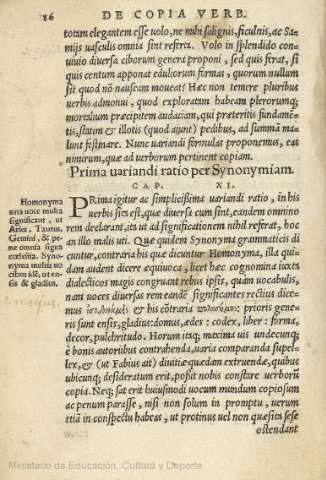 86 DE COPIA VERB.
totum elegantem esse uolo, ne mihi salignis, ficulnis, ac Sa-
mijs uasculis omnia sint referta. Volo in splendido con-
uiuio diuersa ciborum genera proponi, sed quis ferat, si
quis centum apponat edulíorum formas, quorum nullum
sit quod nō nauseam moueat? Hæc non temere pluribus
uerbis admonui, quod exploratam habeam plerorumq;
mortalium præcipitem audaciam, qui præteritis fundamē-
tis, statim & illotis (quod aiunt) pedibus, ad summā ma-
lunt festinare. Nunc uariandi formulas proponemus, eas
nimirum, quæ ad uerborum pertinent copiam.
Prima uariandi ratio per Synonymiam.
CAP. XI.
Homonyma
una uoce multa
significant, ut
Aries, Taurus,
Gemini, & pe-
ne omnia signa
cœlestia. Synony-
nyma multis uo-
cibus idē, ut en-
sis & gladius.
PRima igitur ac simplicissima uariandi ratio, in his
uerbis sita est, quæ diuersa cum sint, eandem omnino
rem declarant, ita ut ad significationem nihil referat, hoc
an illo malis uti. Quæ quidem Synonyma grammaticis di-
cuntur, contraria his quæ dicuntur Homonyma, illa qui-
dam audent dicere æquiuoca, licet hæc cognomina iuxta
dialecticos magis congruant rebus ipsis, quàm uocabulis,
nam uoces diuersas rem eandē significantes rectius dice-
mus ἰσοδυναμεῖν & his cōtraria prioris gene-
ris sunt ensis, gladius: domus, ædes: codex, liber: forma,
decor, pulchritudo. Horum itaq; maxima uis undecunq;
è bonis autoribus contrahenda, uaria comparanda supel-
lex, & (ut Fabius ait) diuitiæ quædam extruendæ, quibus
ubicunq; desideratum erit, possit nobis constare uerborū
copia. Neq; sat erit huiusmodi uocum mundum copiosum
ac penum parasse, nisi non solum in promptu, uerum
etiā in conspectu habeas, ut protinus uel non quæsita sese
ostendant
Ministerio de Educación, Cultura y Deporte